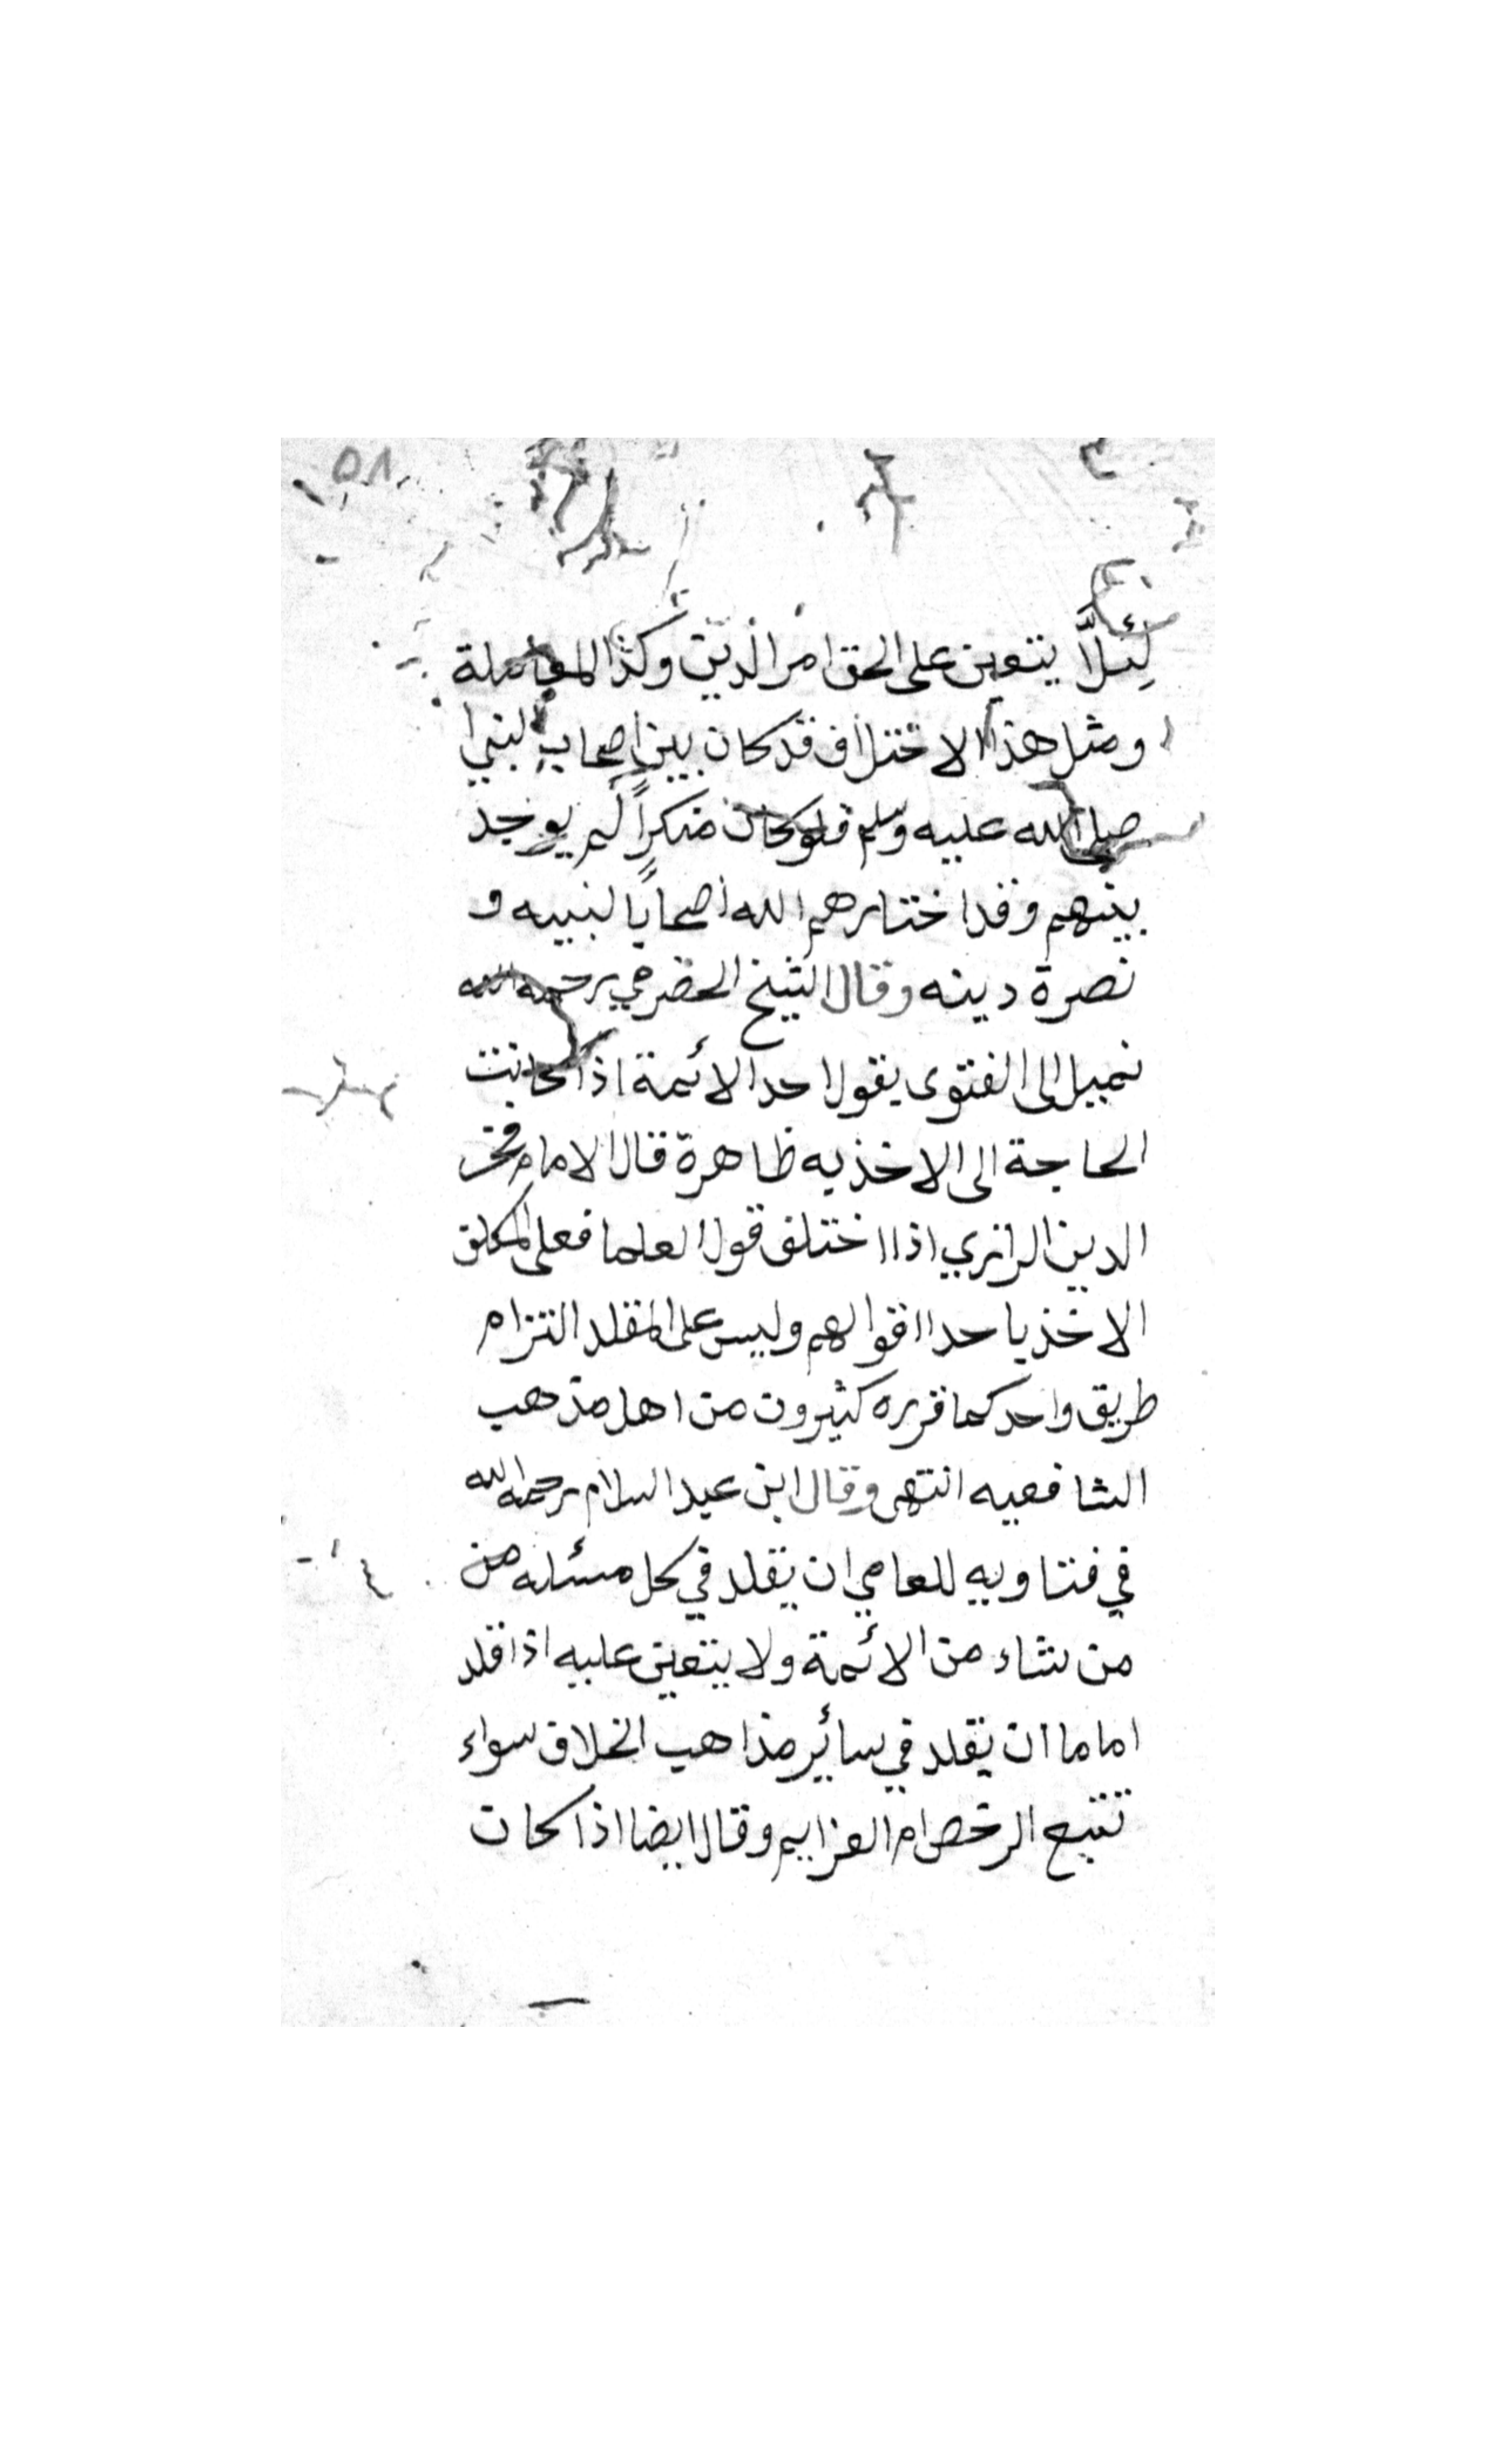 ٥٨
لِئلاَّ يتعين على الحق امر الدين وكذا المعاملة
ومثل هذا الاختلاف قد كان بين اصحاب النبي
صلى الله عليه وسلم فلو كان منكراً لم يوجد
بينهم وقد اختارهم الله اصحابا لنبيه و
نصرة دينه وقال الشيخ الحضرمي رحمه الله
نميل الى الفتوى بقول احد الائمة اذا كانت
الحاجة الى الاخذ به ظاهرة قال الامام فخر
الدين الرازي اذا اختلف قول العلما فعلى المكلف
الاخذ باحد اقوالهم وليس على المقلد التزام
طريق واحد كما قرره كثيرون من اهل مذهب
الشافعيه انتهى وقال ابن عبد السلام رحمه الله
في فتاويه للعامي ان يقلد في كل مسئله من
من شاء من الائمة ولا يتعين عليه اذا قلد
اماما ان يقلد في سائر مذاهب الخلاف سواء
تتبع الرخص ام العزايم وقال ايضا اذا كان